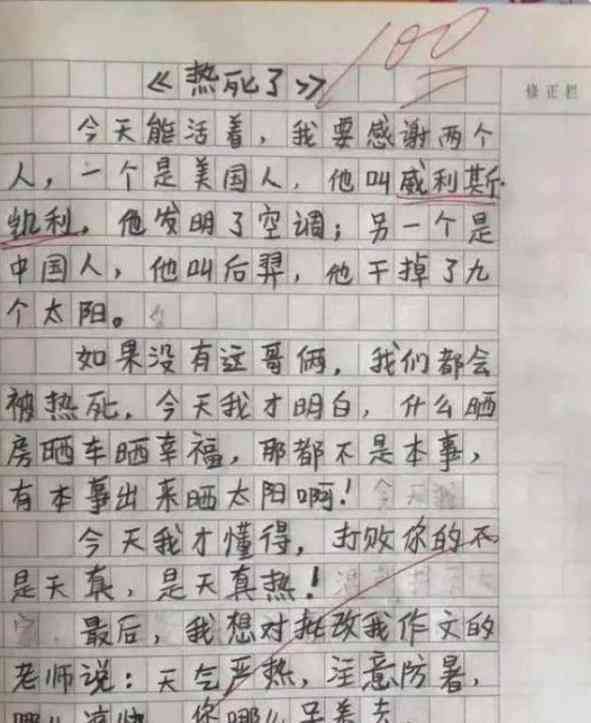 100
《热死了》
修正栏
今天能活着，我要感谢两个
人，一个是美国人，他叫威利斯·
凯利，他发明了空调；另一个是
中国人，他叫后羿，他干掉了九
个太阳。
如果没有这哥俩，我们都会
被热死，今天我才明白，什么晒
房晒车晒幸福，那都不是本事，
有本事出来晒太阳啊！
今天我才懂得，打败你的不
是天真，是天真热！
最后，我想对批改我作文的
老师说：天气严热，注意防暑，
哪儿凉快，你哪儿呆着去